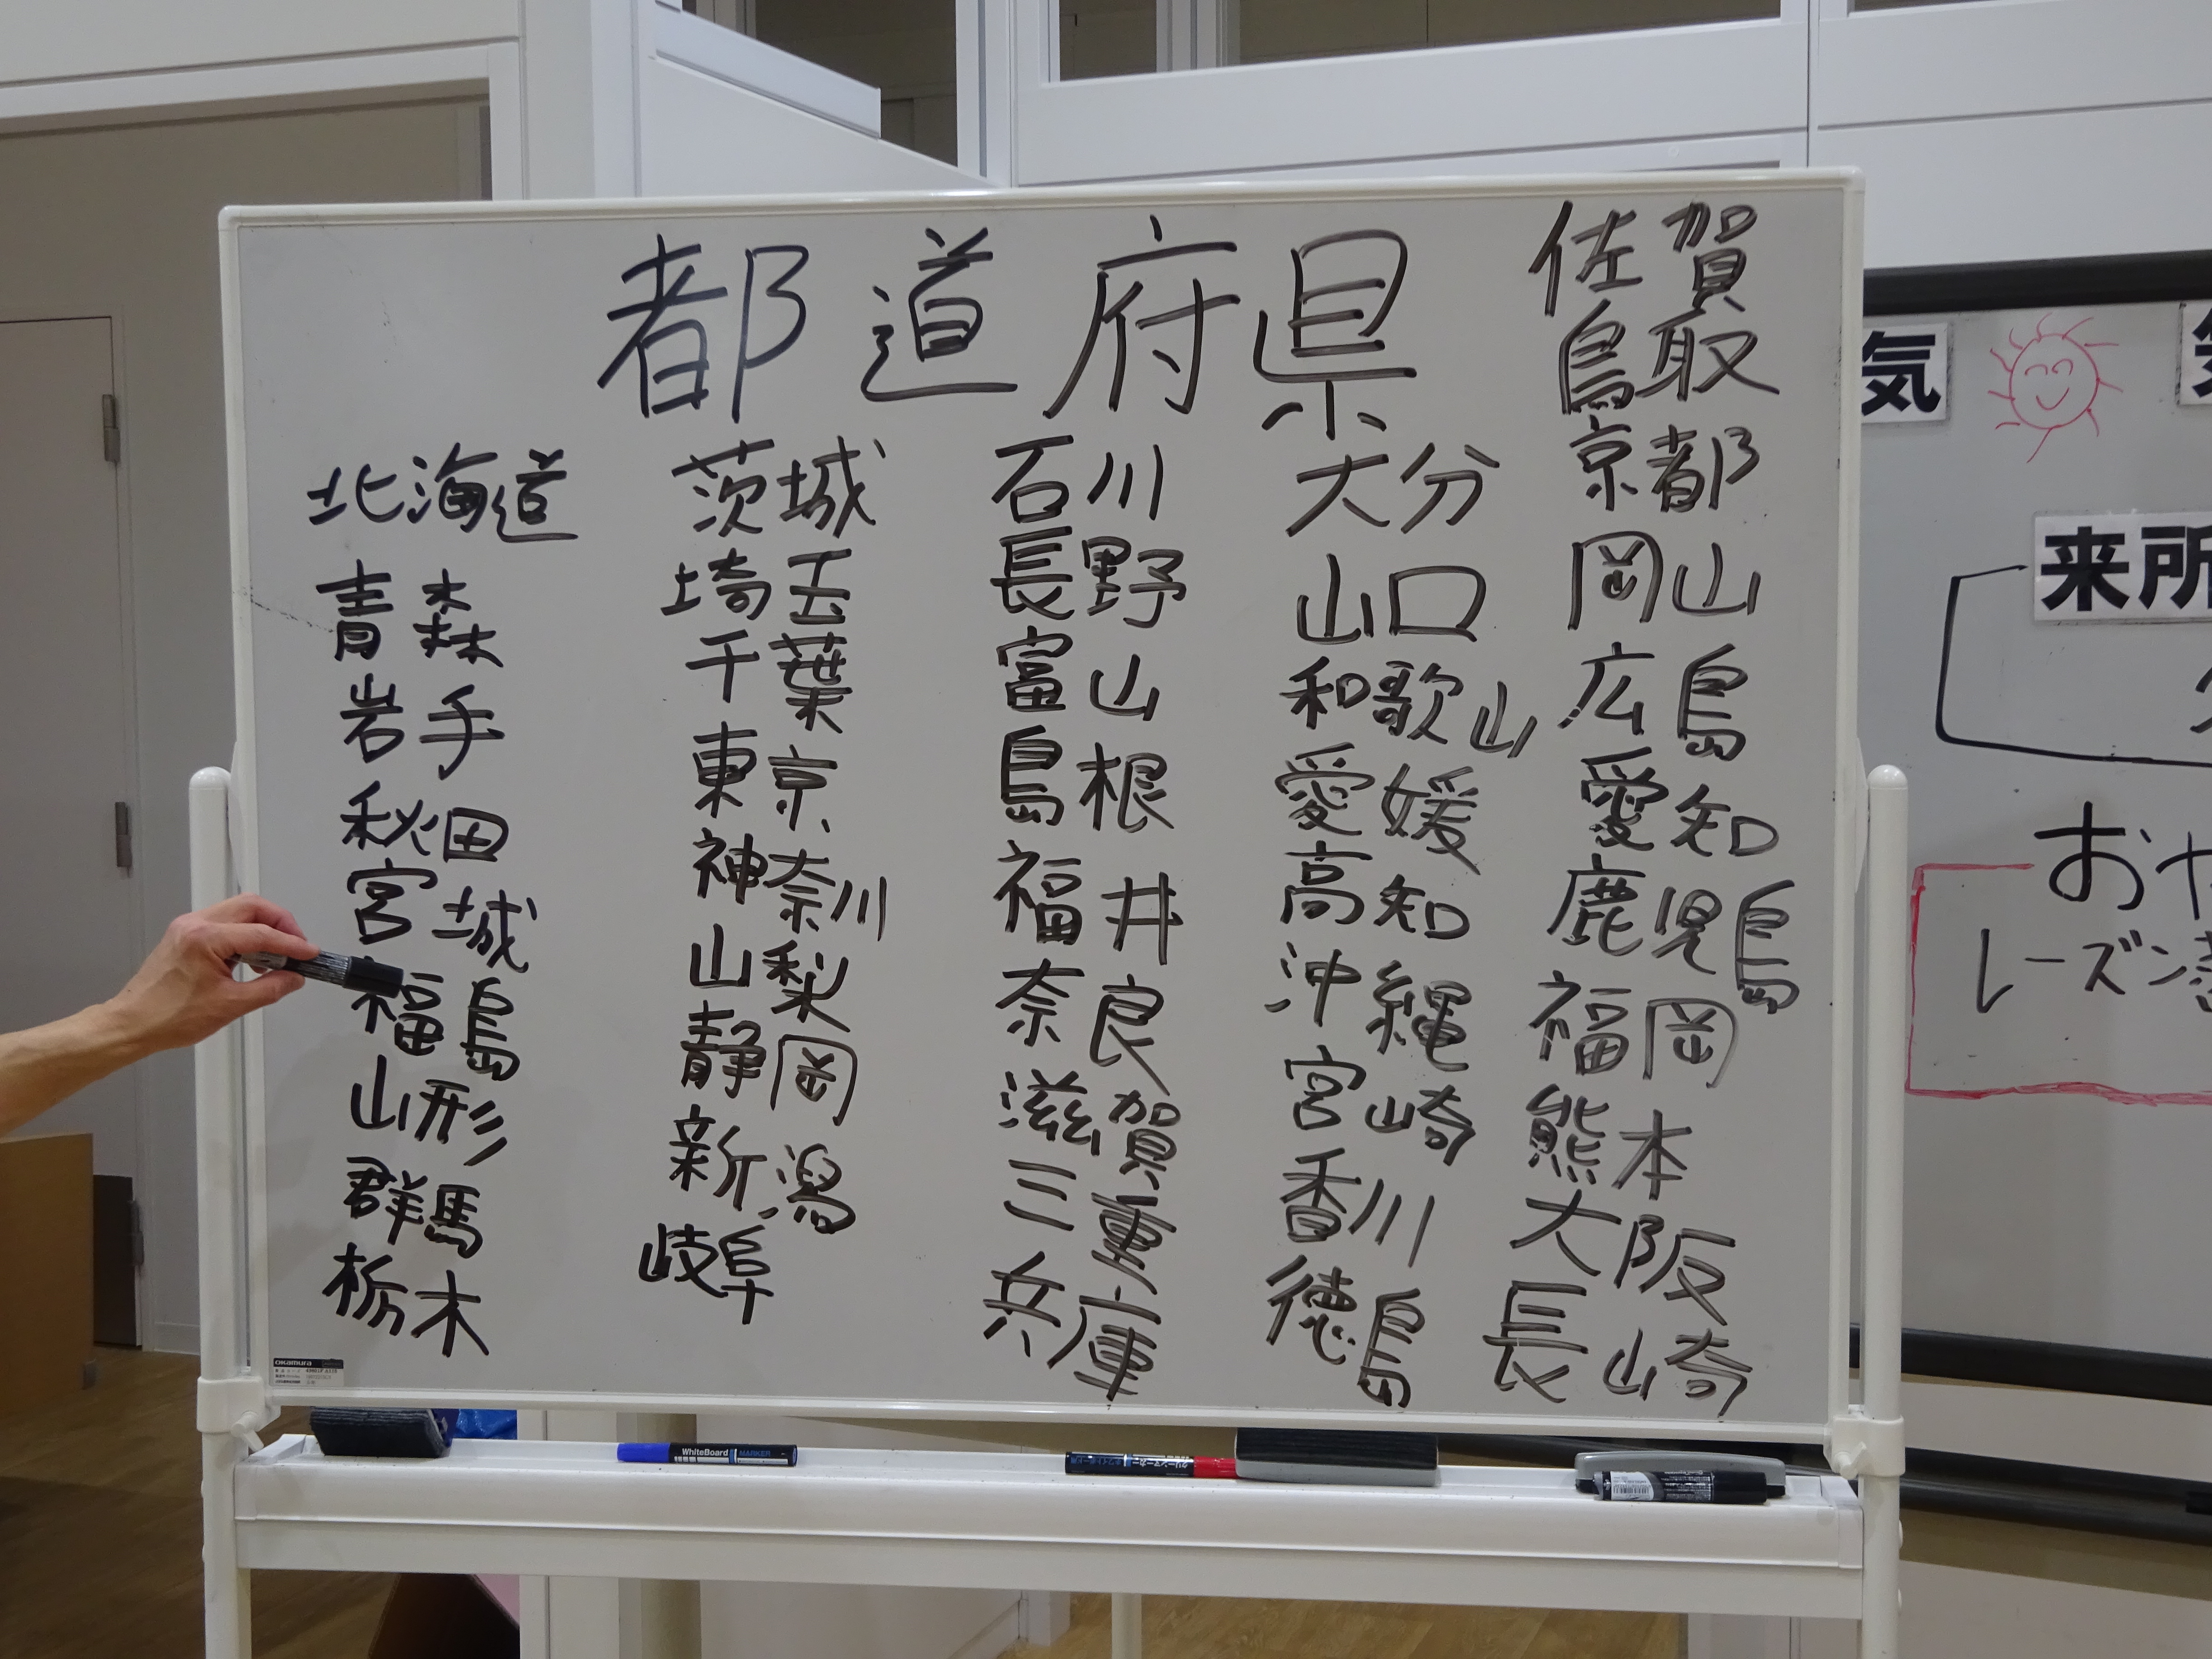 都道府県
北海道
青森
岩手
秋田
宮城
福島
山形
群馬
栃木
茨城
埼玉
千葉
東京
神奈川
山梨
静岡
新潟
岐阜
石川
長野
富山
島根
福井
奈良
滋賀
三重
兵庫
大分
山口
和歌山
愛媛
高知
沖縄
宮崎
香川
徳島
佐賀
鳥取
京都
岡山
広島
愛知
鹿児島
福岡
熊本
大阪
長崎
気
来所
おや
レーズン
okamura
WhiteBoard MARKER